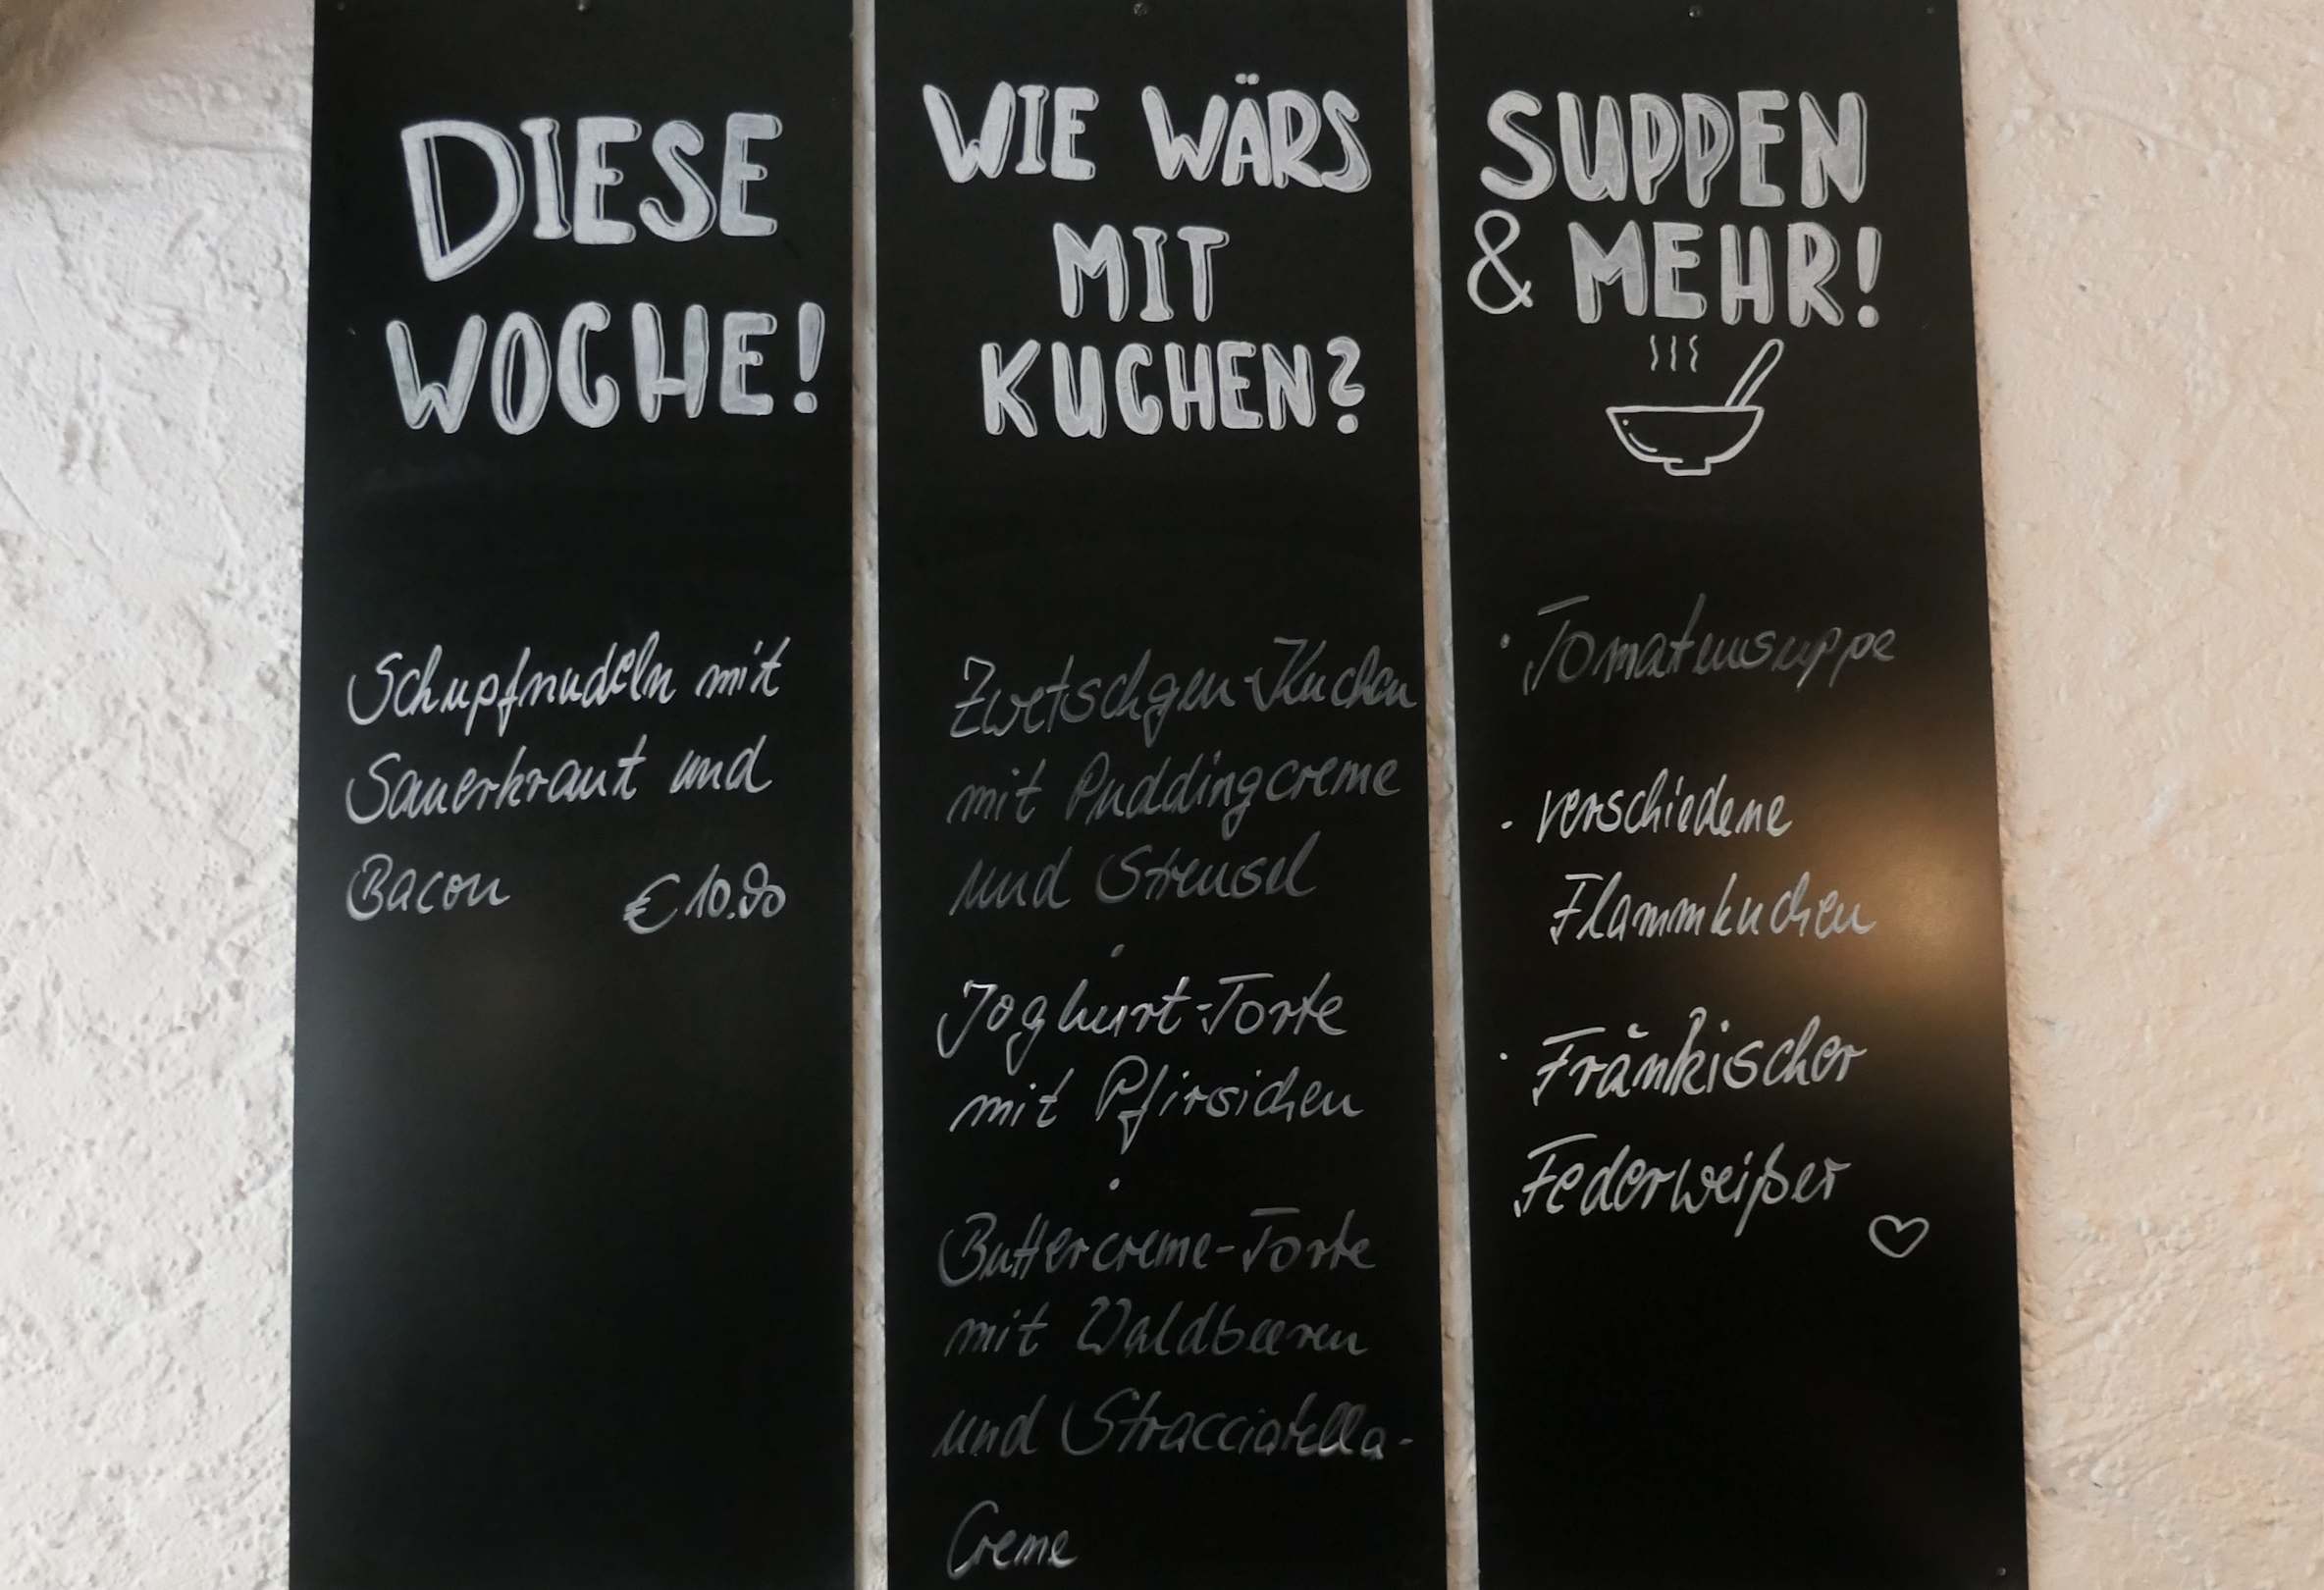 DIESE
WOCHE!
Schupfnudeln mit
Sauerkraut und
Bacon €10.90
WIE WÄRS
MIT
KUCHEN?
Zwetschgen-Kuchen
mit Puddingcreme
und Streusel
Joghurt-Torte
mit Pfirsichen
Buttercreme-Torte
mit Waldbeeren
und Stracciatella-
Creme
SUPPEN
& MEHR!
· Tomatensuppe
· verschiedene
Flammkuchen
· Fränkischer
Federweißer